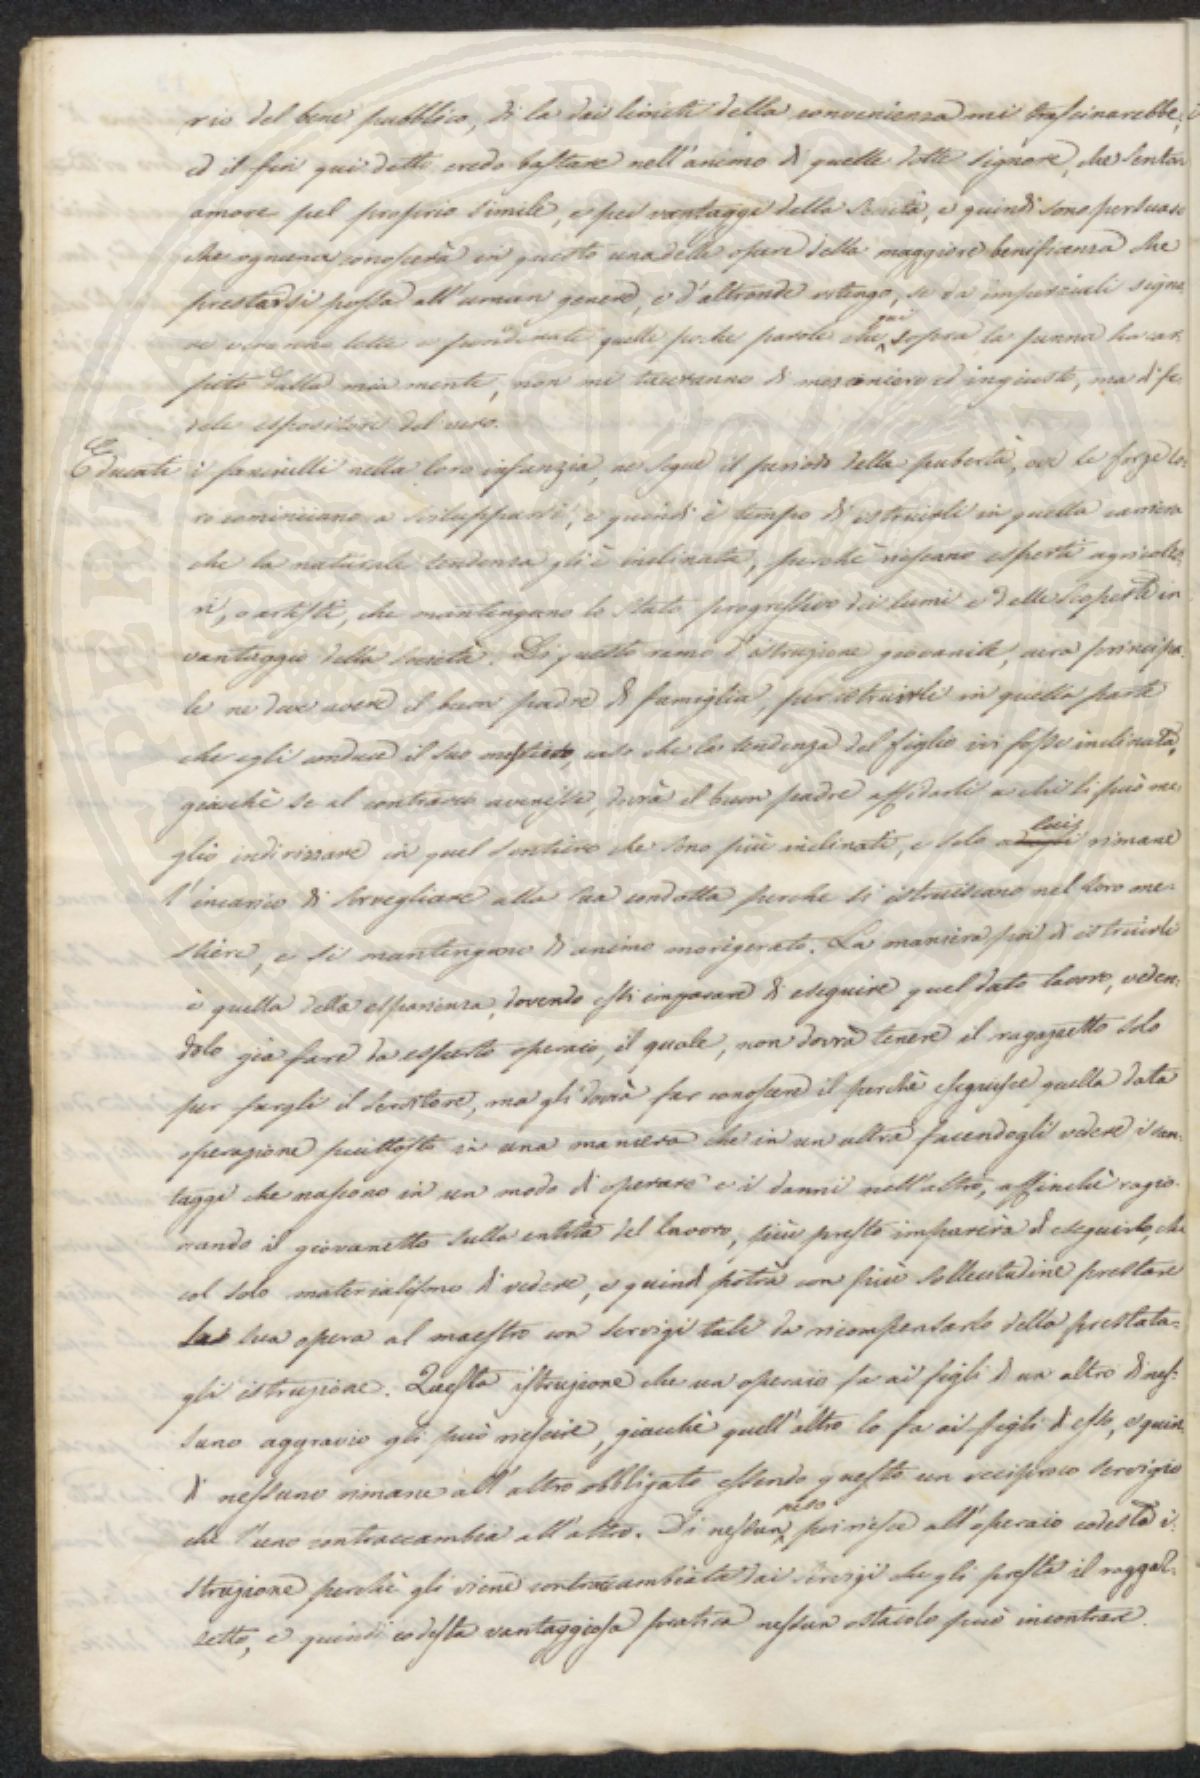 rio del bene pubblico, di la dai limiti della convenienza mi trascinarebbe,
ed il fin qui detto credo bastare nell'animo di quelle dotte signore, che senton
amore pel proprio simile, e pei vantaggi della Società, e quindi sono persuaso
che ognuna conoscerà in questo una delle opere della maggiore benificenza che
prestarsi possa all'uman genere, e d'altronde ritengo, se da imparziali signo
re verranno lette e ponderate quelle poche parole che qui sopra la penna ha car
pito dalla mia mente, non mi taceranno di menzoniero ed ingiusto, ma di fe
dele espositore del vero.
Educati i fanciulli nella loro infanzia, ne segue il periodo della pubertà, ove le forze lo-
ro cominciano a svilupparsi, e quindi è tempo di istruirli in quella carriera
che la naturale tendenza gli è inclinata, perchè riescano esperti agricolto-
ri, o artisti, che mantengano lo stato progressivo dei lumi e delle scoperte in
vantaggio della Società. Di questo ramo d'istruzione giovanile, cura principa-
le ne deve avere il buon padre di famiglia, per istruirle in quella parte
che egli conduce il suo mestiere, caso che la tendenza del figlio ivi fosse inclinata,
giacchè se al contrario avenisse, dovrà il buon padre affidarli a chi li può me-
glio indirizzare in quel sentiero che sono più inclinati, e solo a lui rimane
l'incarico di sorvegliare alla sua condotta perche si istruiscano nel loro me-
stiere, e si mantengano di animo morigerato. La maniera poi di istruirli
è quella della esperienza, dovendo essi imparare di eseguire quel dato lavoro, veden-
dolo già fare da esperto operaio, il quale, non dovrà tenere il ragazzetto solo
per fargli il servitore, ma gli dovrà far conoscere il perchè eseguisce quella data
operazione piuttosto in una maniera che in un altra facendogli vedere i van-
taggi che nascono in un modo di operare e i danni nell'altro, affinchè ragio-
nando il giovanetto sulla entità del lavoro, più presto imparerà di eseguirlo, che
col solo materialismo di vedere, e quindi potrà con più sollecitudine prestare
la sua opera al maestro con servigi tali da ricompensarlo della prestata-
gli istruzione. Questa istruzione che un operaio fa ai figli di un altro di nes-
suno aggravio gli può riescire, giacchè quell'altro lo fa ai figli di esso, e quin
di nessuno rimane all'altro obbligato essendo questo un reciproco servigio
che l'uno contraccambia all'altro. Di nessun peso poi riesce all'operaio codesta i-
struzione perchè gli viene contracambiata dai servigi che gli presta il raggaz-
zetto, e quindi codesta vantaggiosa pratica nessun ostacolo può incontrare.